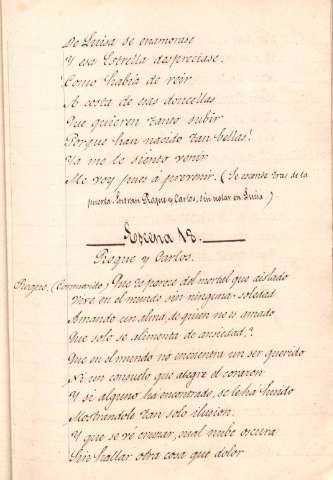 De Luisa se enamorase
Y esa Estrella despreciase.
Como había de reir
A costa de esas doncellas
Que quieren tanto subir
Porque han nacido tan bellas!
Ya me le siento venir
Me voy pues á prevenir. (Se esconde tras de la
puerta. Entran Roque y Carlos, sin notar en Luisa)
Escena 18.
Roque y Carlos.
Roque. (Conmovido) Que te parece del mortal que aislado
Vive en el mundo sin ninguna soledad
Amando un alma de quien no es amado
Que solo se alimenta de ansiedad?
Que en el mundo no encuentra un ser querido
Ni un consuelo que alegre el corazon
Y si alguno ha encontrado, se le ha huido
Mostrandole tan solo ilusion.
Y que se vé cruzar, cual nube oscura
Sin hallar otra cosa que dolor